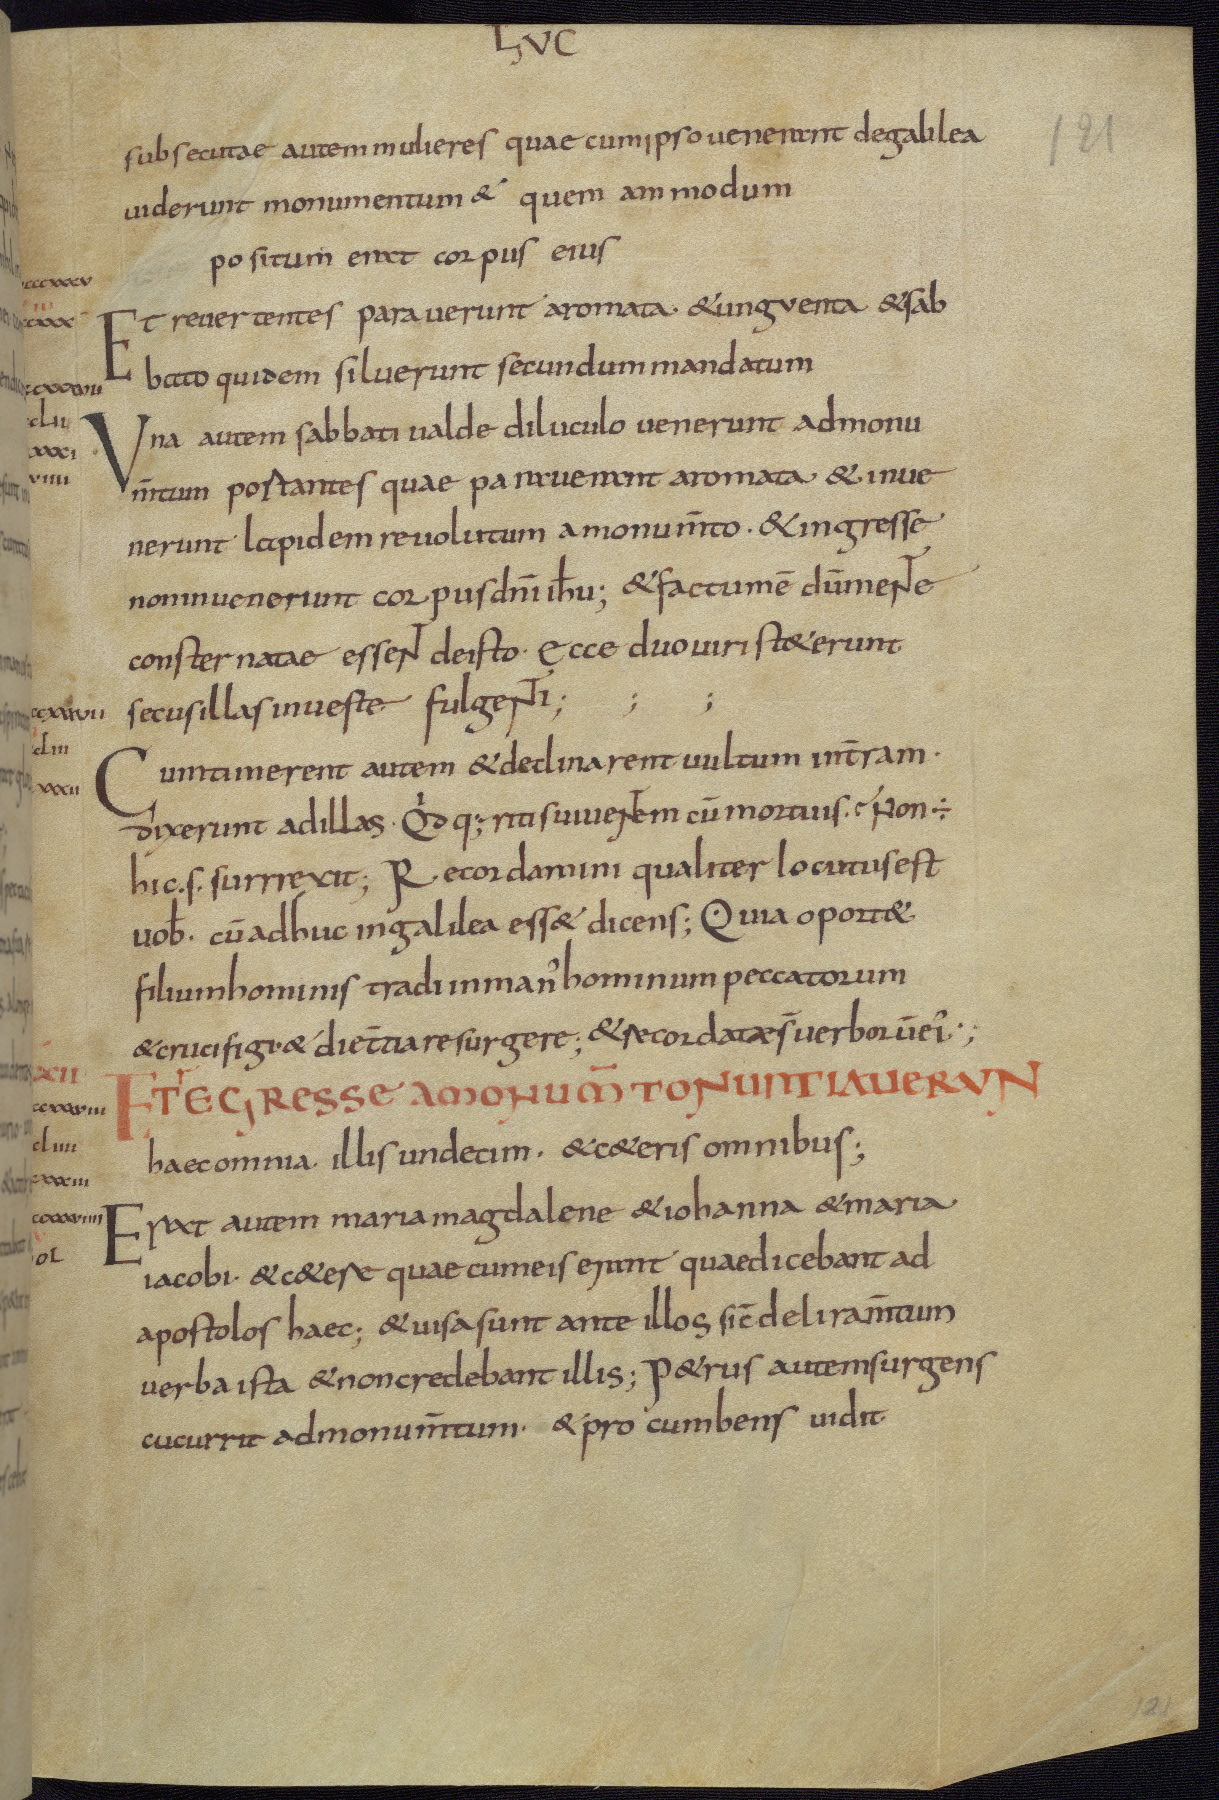 LUC
121
subsecutae autem mulieres quae cum ipso uenerant de galilea
uiderunt monumentum & quem ammodum
positum erat corpus eius
Et reuertentes parauerunt aromata · & unguenta & sab
bato quidem siluerunt secundum mandatum
Vna autem sabbati ualde diluculo uenerunt ad monu
m̄tum portantes quae parauerant aromata & inue
nerunt lapidem reuolutum a monum̄to · & ingresse
non inuenerunt corpus dn̄i ih̄u; & factum ē dū mente
consternatae essent de isto · Ecce duo uiri st&erunt
secus illas in ueste fulgenti; ; ;
Cum timerent autem & declinarent uultum in t̄ram ·
dixerunt ad illas · Qd q; ritis uiuentem cū mortuis · Non ÷
hic · s · surrrexit; Recordamini qualiter locutus est
uob̄ · cū adhuc in galilea ess& dicens; Quia oport&
filium hominis tradi in man' hominum peccatorum
& crucifigi & die t̄tia resurgere; & recordatae s̄ uerborū ei';
ET REGRESSE A MONUM̄TO NUNTIAUERUN
haec omnia · illis undecim · & c&eris omnibus;
Erat autem maria magdalene & iohanna & maria
iacobi · & c&ere quae cum eis erunt quae dicebant ad
apostolos haec; & uisa sunt ante illos sic̄ deliram̄tum
uerba ista & non credebant illis; P&rus autem surgens
cucurrit ad monum̄tum · & procumbens uidit
121